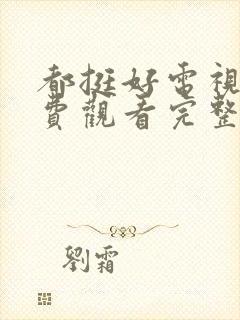 都挺好電視
費觀看完整
劉霜